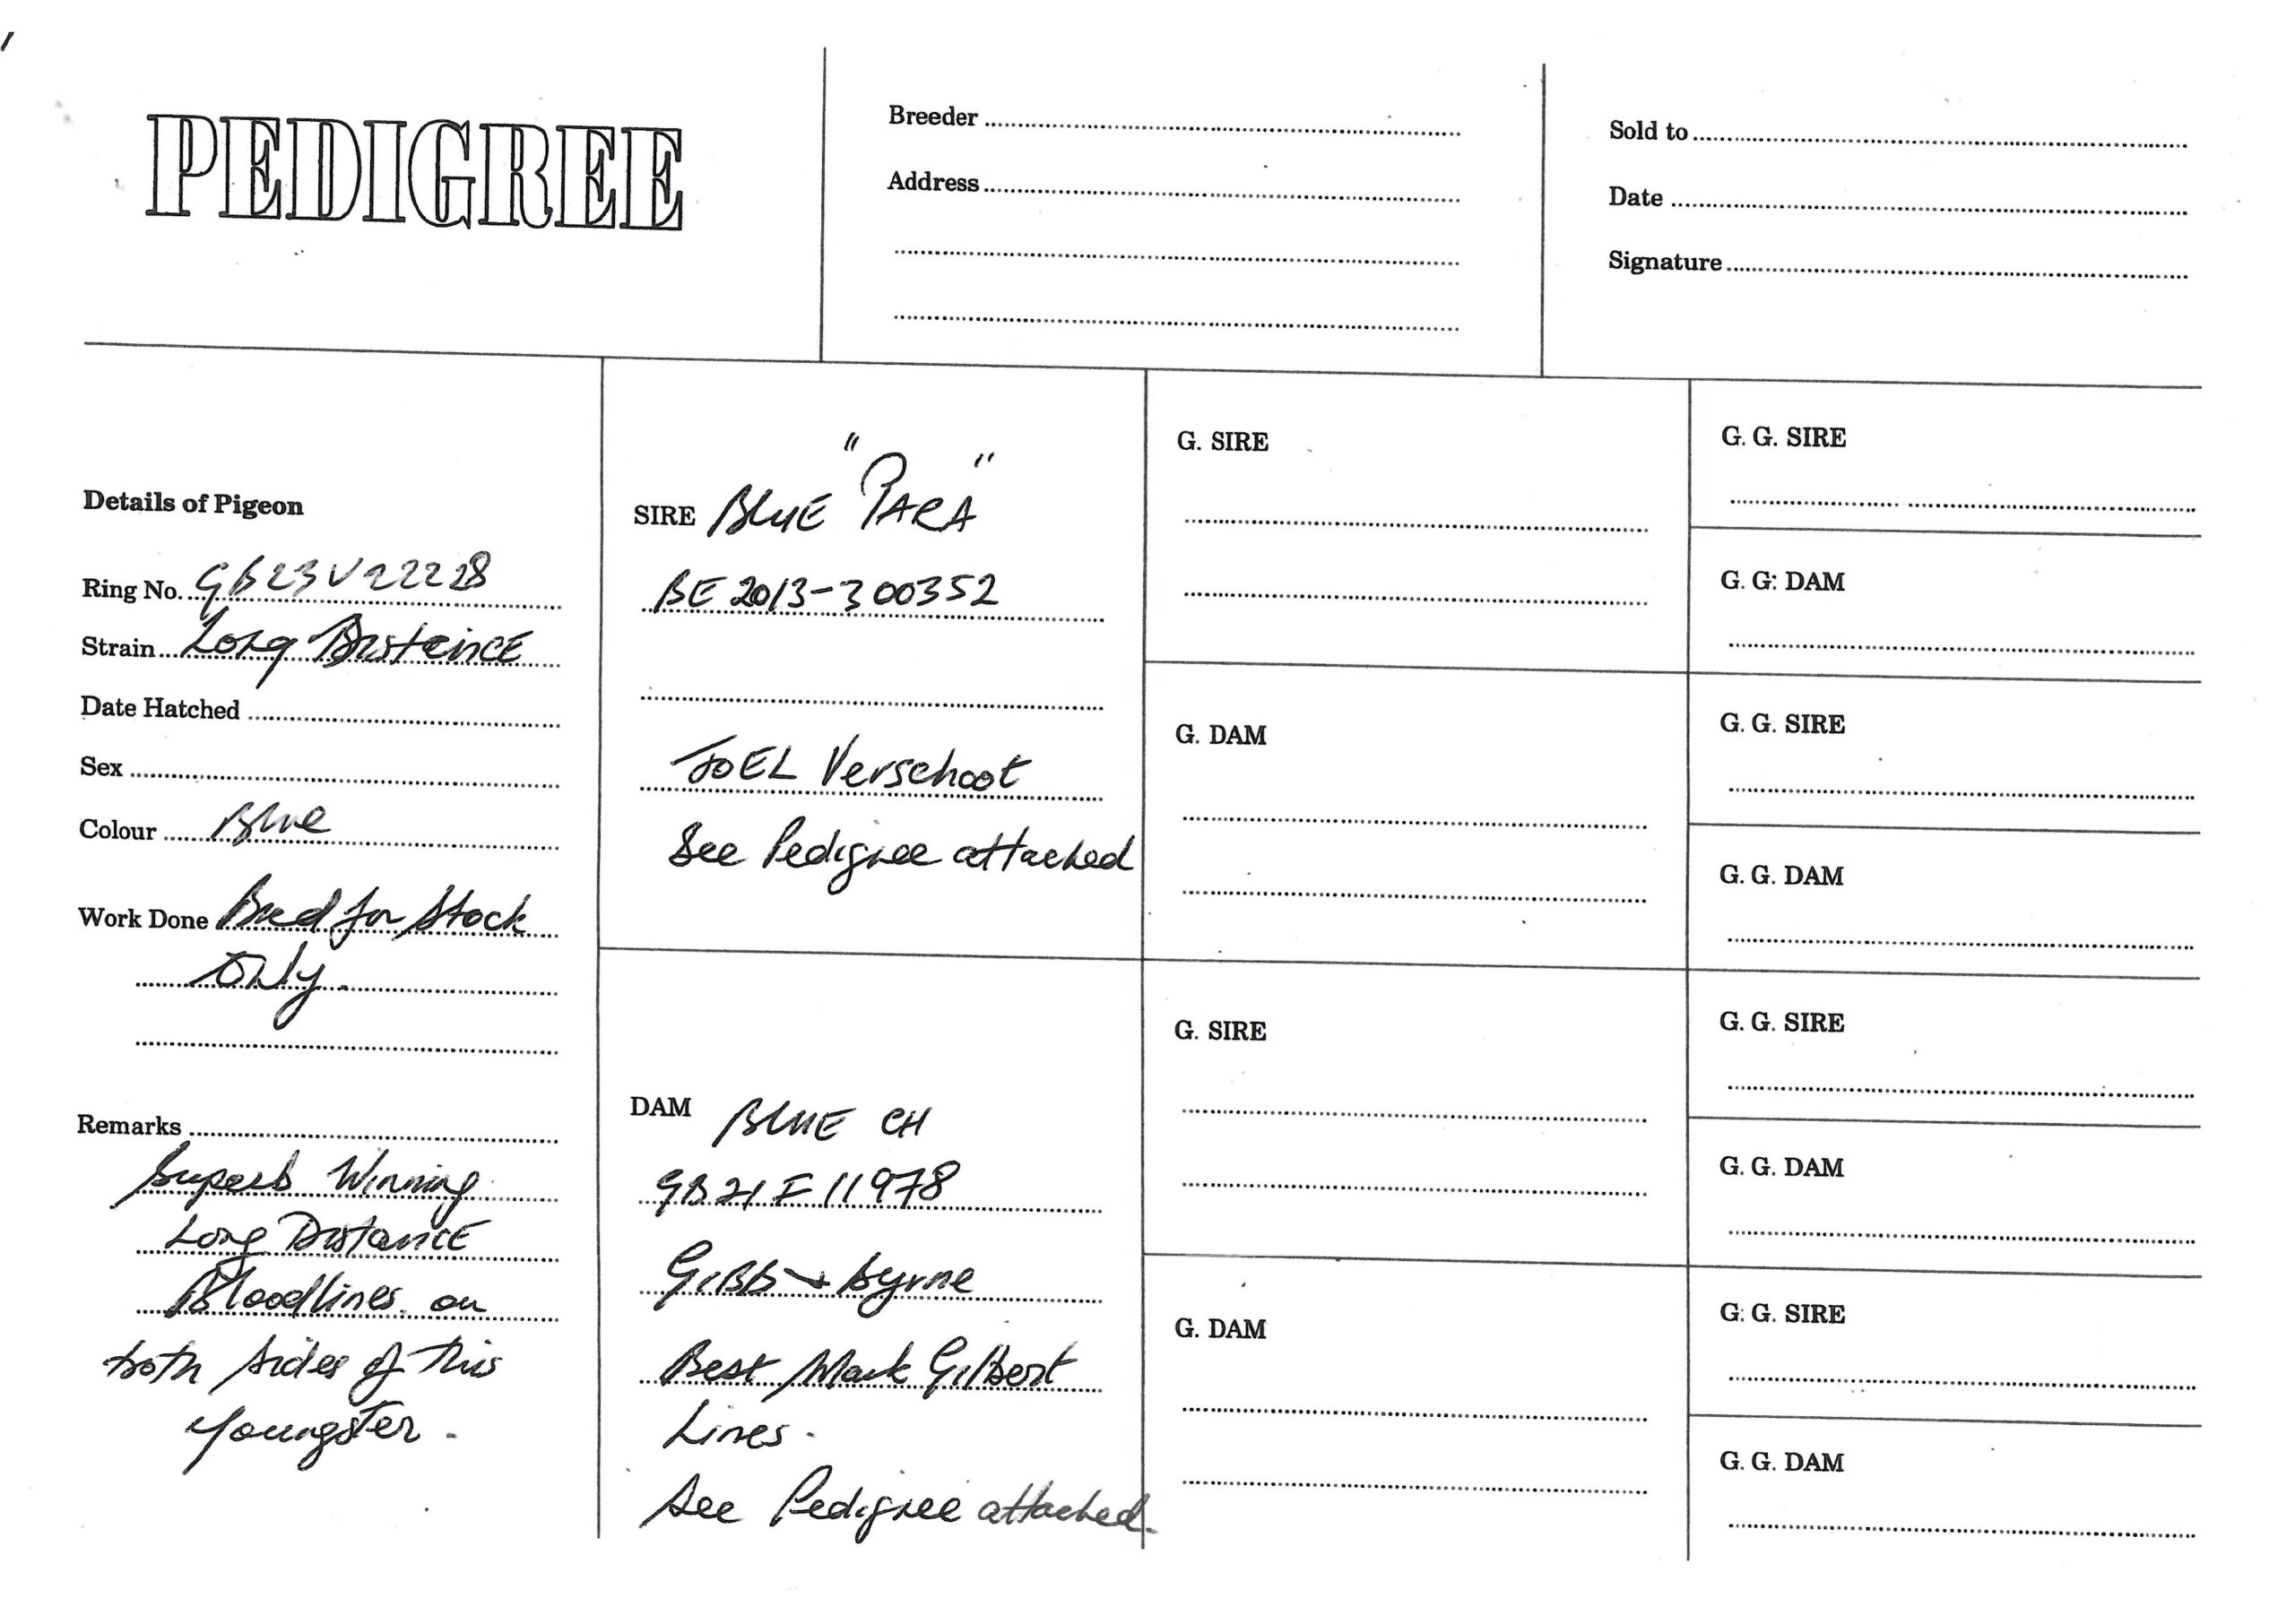 PEDIGREE
Breeder
Address
Sold to
Date
Signature
Details of Pigeon
Ring No. GB23V22228
Strain Long Distance
Date Hatched
Sex
Colour Blue
Work Done Bred for Stock
Only.
Remarks
Superb Winning
Long Distance
Bloodlines on
both sides of this
Youngster.
SIRE BLUE "PARA"
BE 2013-300352
JOEL Verschoot
See Pedigree attached
DAM BLUE CH
GB21F11978
GIBB + Byrne
Best Mark Gilbert
Lines.
See Pedigree attached.
G. SIRE
G. DAM
G. SIRE
G. DAM
G. G. SIRE
G. G: DAM
G. G. SIRE
G. G. DAM
G. G. SIRE
G. G. DAM
G. G. SIRE
G. G. DAM